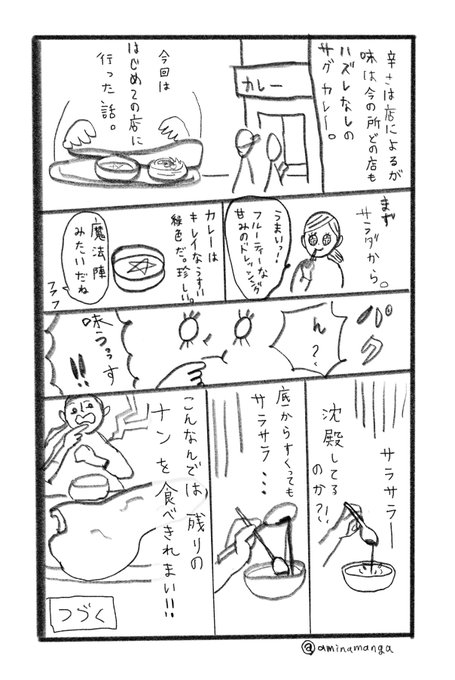 辛さは店によるが
味は今の所どの店も
ハズレなしの
サグカレー。
カレー
今回は
はじめての店に
行った話。
まず
サラダから。
うまい!!
フルーティーな
甘みのドレッシング
カレーは
キレイなうすい
緑色だ。珍しい。
魔法陣
みたいだね
フフフ
パク
ん?
味うっす
!!
サラサラー
沈殿してる
のか?!
底からすくっても
サラサラ・・・
こんなんでは、残りの
ナンを食べきれまい!!
つづく
@aminamanga